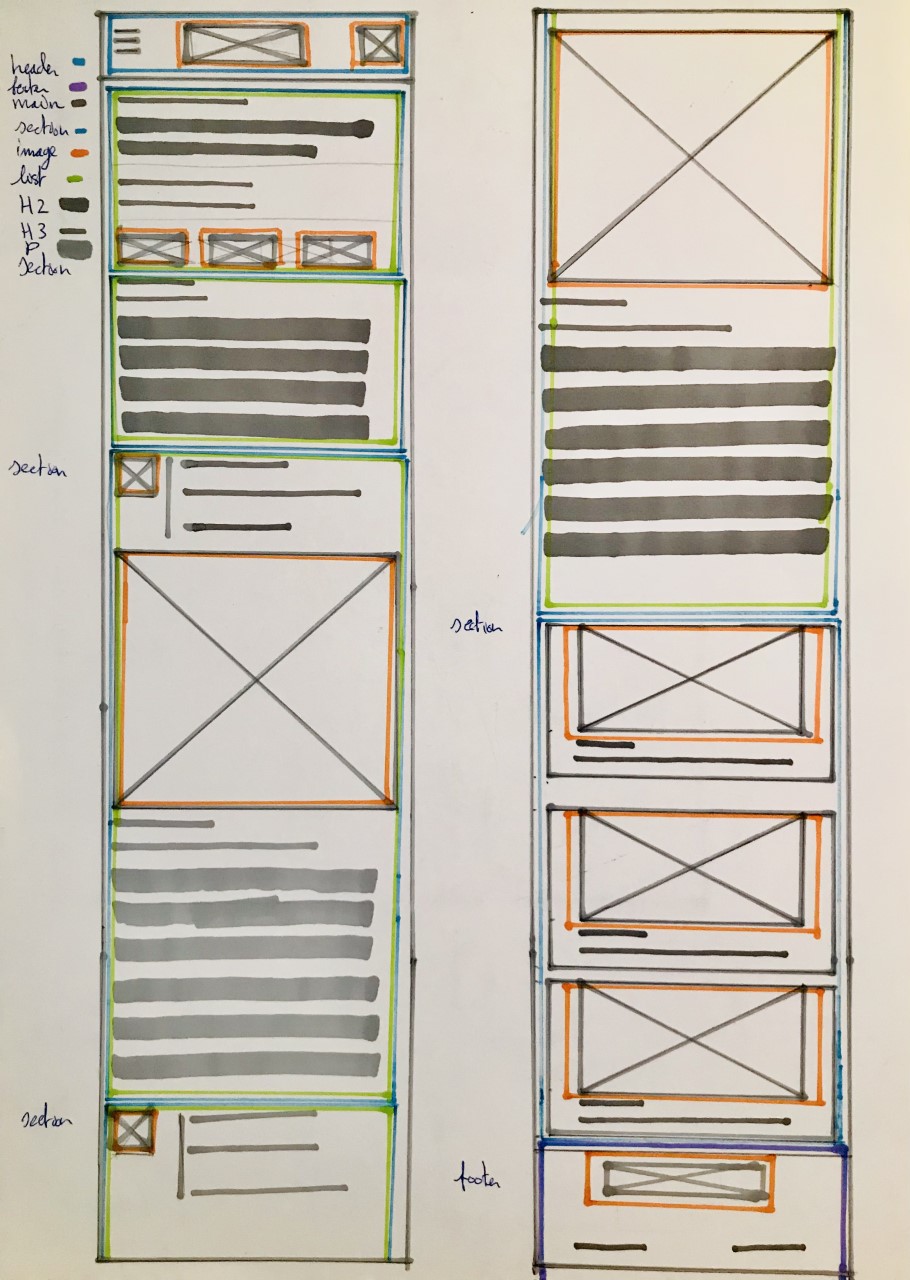 header
footer
main
section
image
list
H2
H3
P
section
section
section
section
footer